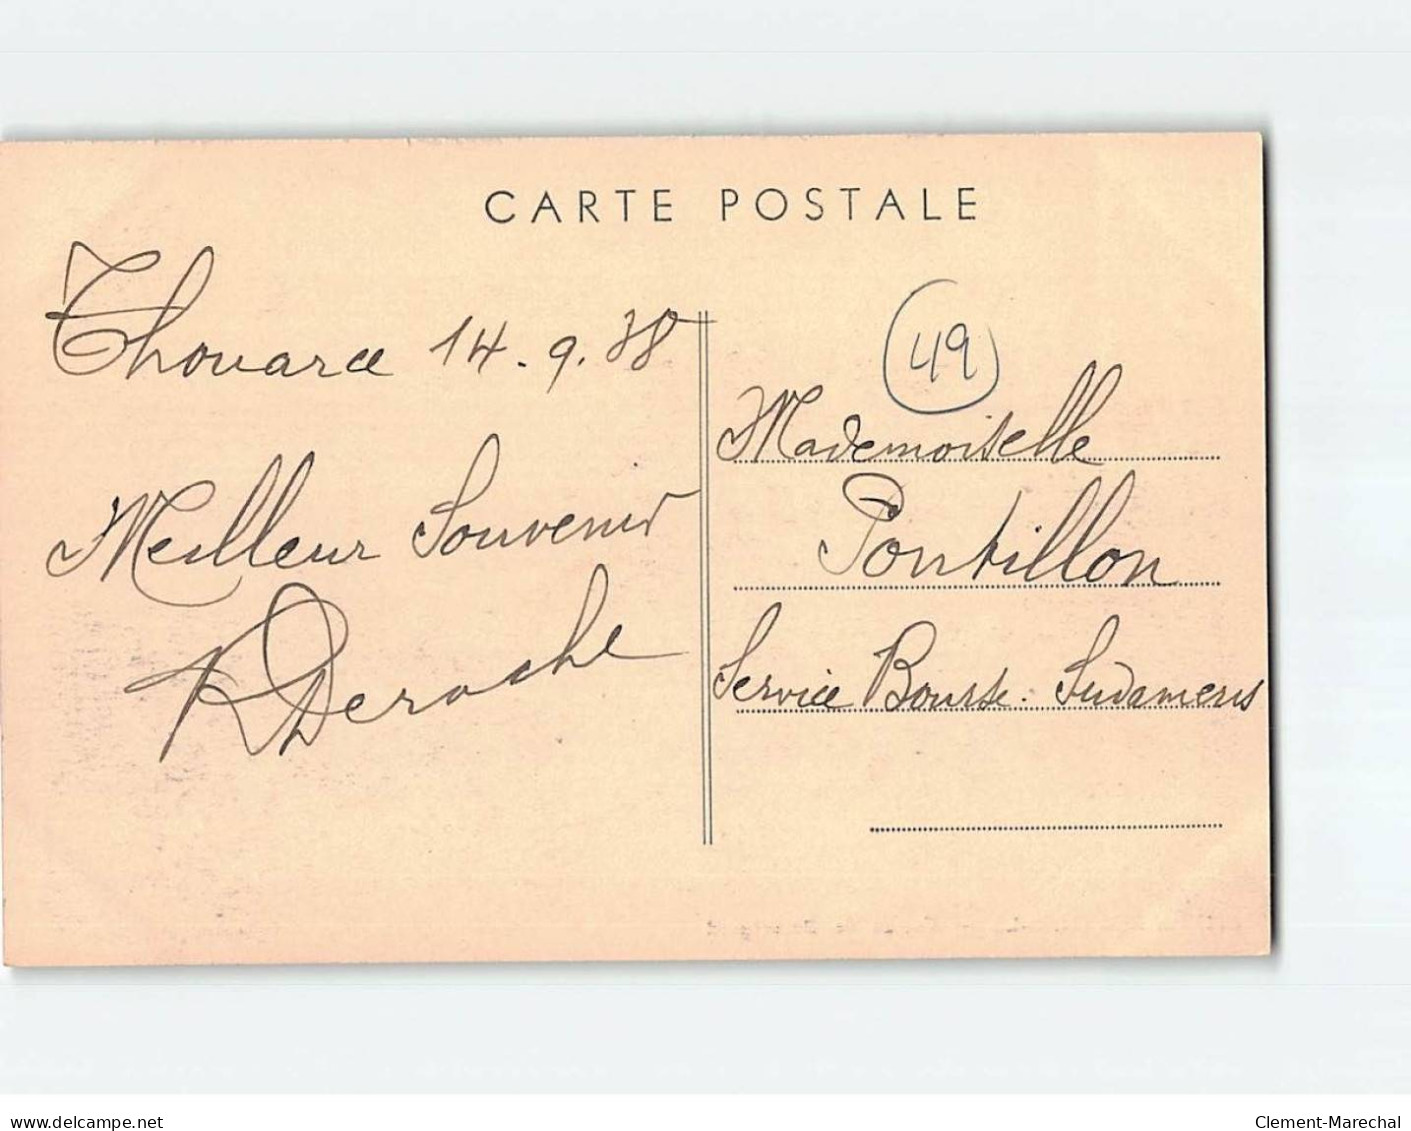 CARTE POSTALE
Thouarcé 14.9.38
Meilleur Souvenir
R Deroche
49
Mademoiselle
Pontillon
Service Bourse. Sudameris
www.delcampe.net
Clement-Marechal